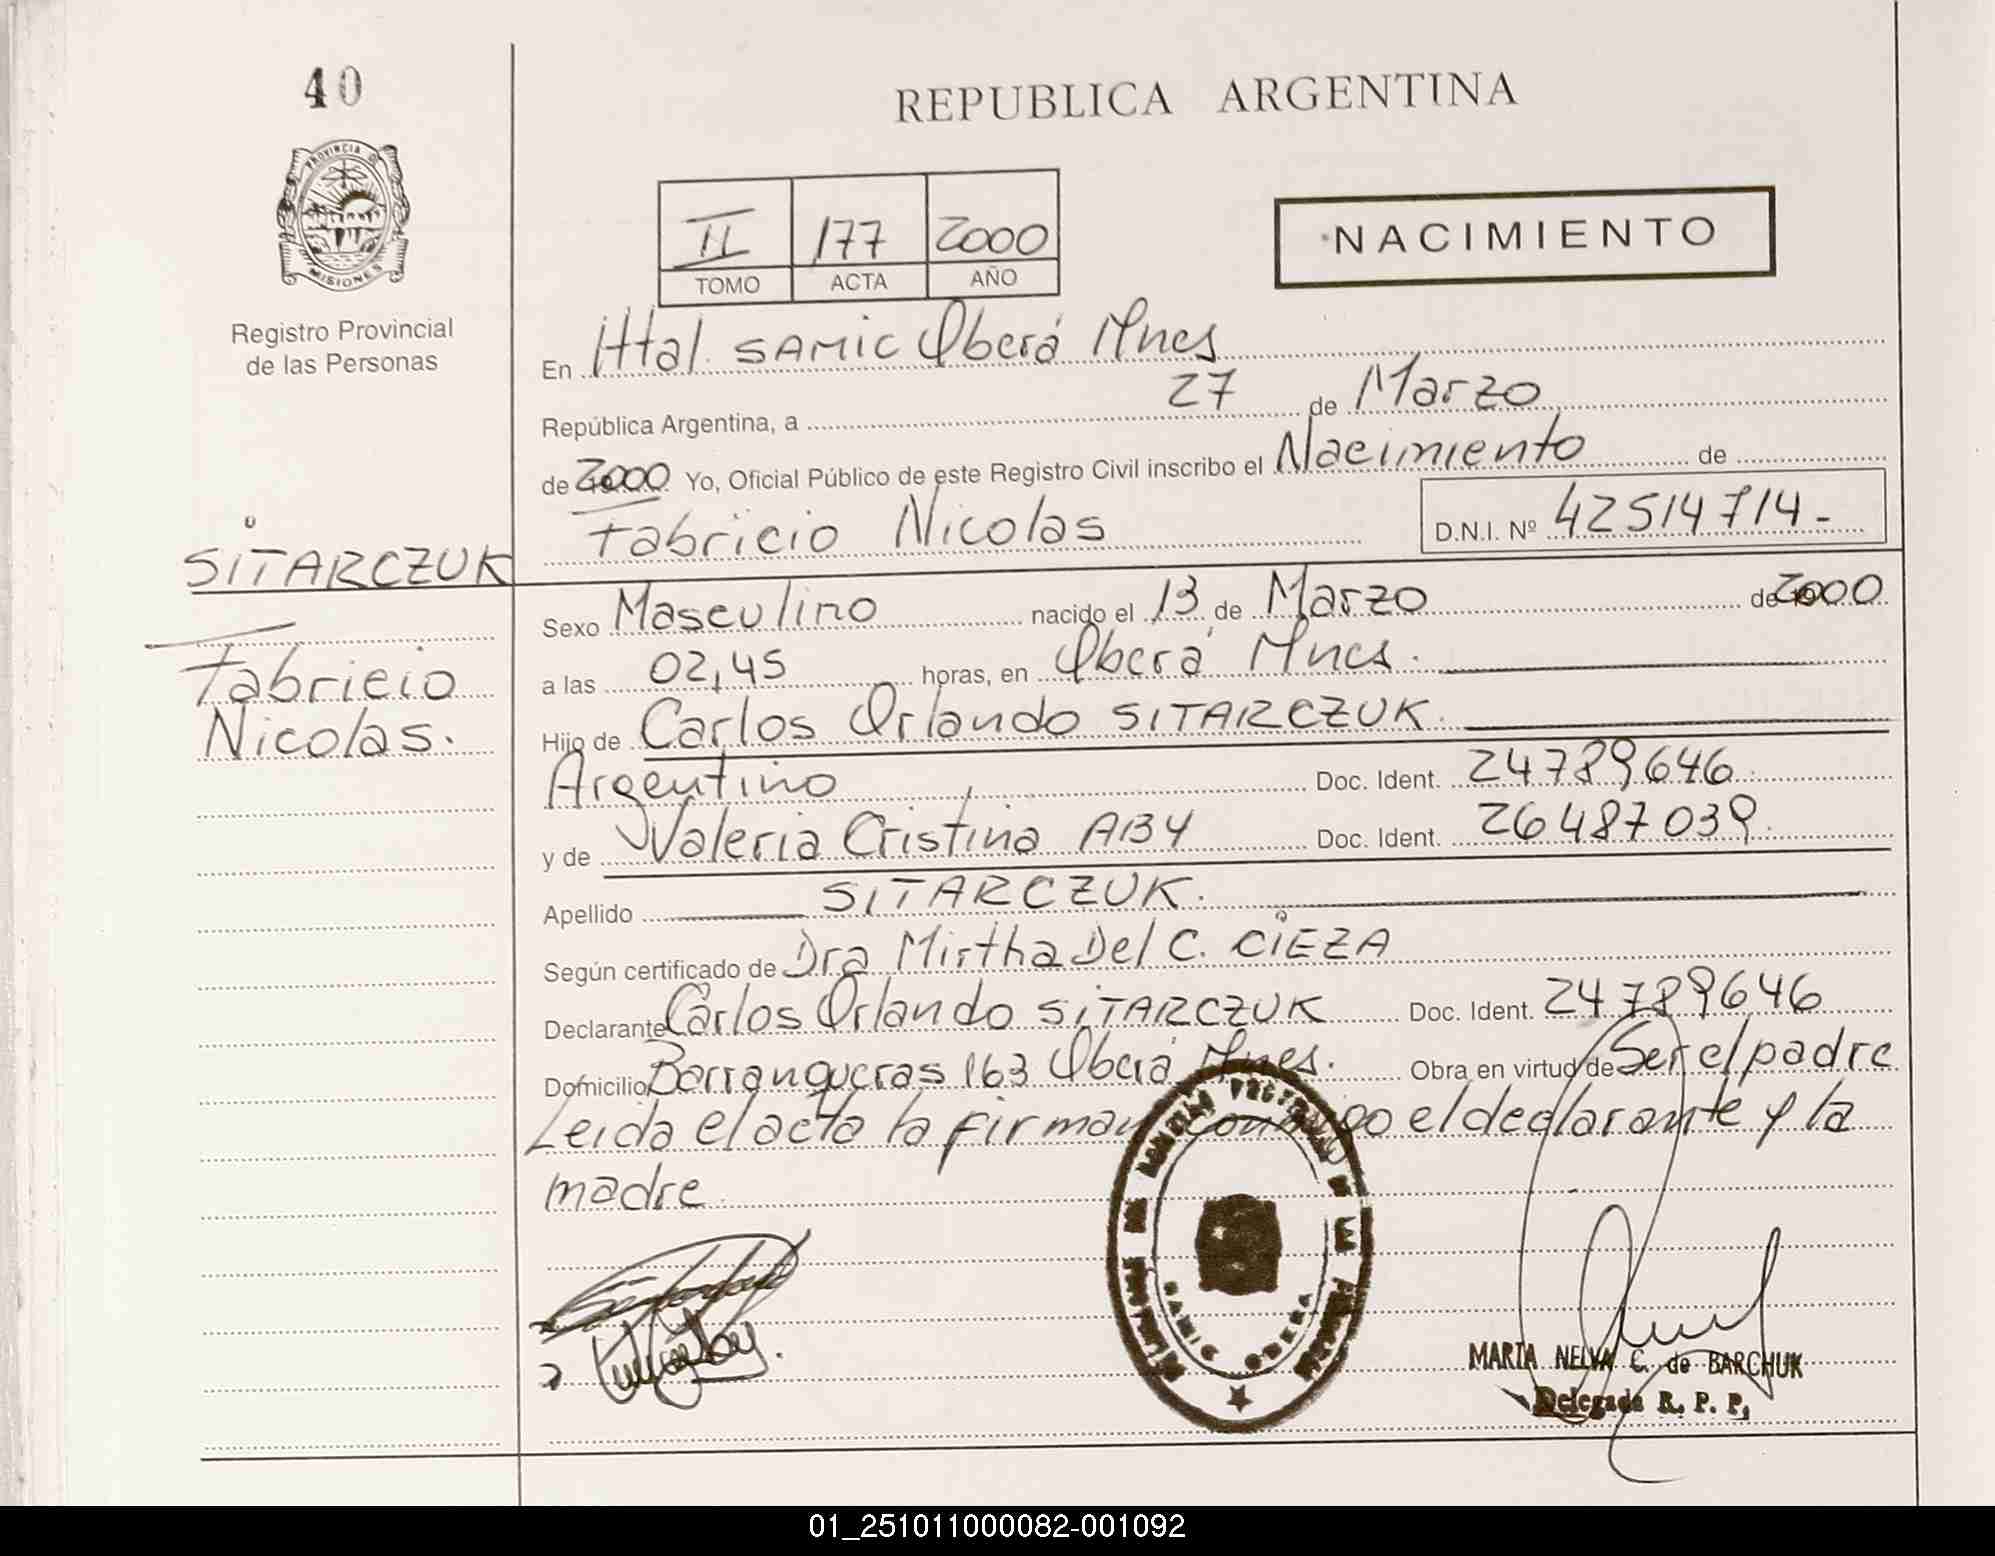 40
REPUBLICA ARGENTINA
PROVINCIA D
MISIONES
Registro Provincial
de las Personas
II 177 2000
TOMO ACTA AÑO
NACIMIENTO
En Httal. SAMIC Oberá Mnes
República Argentina, a 27 de Marzo
de 2000 Yo, Oficial Público de este Registro Civil inscribo el Nacimiento de
Fabricio Nicolas D.N.I. Nº 42514714-
SITARCZUK
Fabricio
Nicolas.
Sexo Masculino nacido el 13 de Marzo de 2000
a las 02,45 horas, en Oberá Mnes.
Hijo de Carlos Orlando SITARCZUK.
Argentino Doc. Ident. 24789646
y de Valeria Cristina ABY Doc. Ident. 26487039.
Apellido SITARCZUK.
Según certificado de Dra Mirtha Del C. CIEZA
Declarante Carlos Orlando SITARCZUK Doc. Ident. 24789646
Domicilio Barranqueras 163 Oberá Mnes. Obra en virtud de Ser el padre
Leida el acta la firman conmigo el declarante y la
madre
SAMIC OBERA
MARIA NELVA C. de BARCHUK
Delegada R. P. P.
01_251011000082-001092